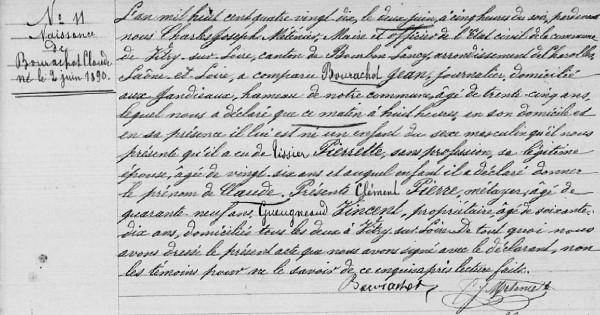 N° 11
Naissance
de
Bourachot Claude
né le 2 juin 1890.
L'an mil huit cent quatre vingt dix, le deux juin, à cinq heures du soir, par devant
nous Charles Joseph Maire et officier de l'Etat civil de la commune
de Vitry-sur-Loire, canton de Bourbon-Lancy, arrondissement de Charolles,
Saône et Loire, a comparu Bourachot Jean, journalier, domicilié
aux hameau de notre commune, âgé de trente-cinq ans,
lequel nous a déclaré que ce matin à huit heures, en son domicile et
en sa présence il lui est né un enfant du sexe masculin qu'il nous
présente qu'il a eu de Tissier Pierrette, sans profession, sa légitime
épouse, âgée de vingt-six ans et auquel enfant il a déclaré donner
le prénom de Claude. Présents Clément Pierre, métayer, âgé de
quarante-neuf ans, Gueugneaud Vincent, propriétaire, âgé de soixante-
dix ans, domiciliés tous les deux à Vitry-sur-Loire. De tout quoi nous
avons dressé le présent acte que nous avons signé avec le déclarant, non
les témoins pour ne le savoir de ce enquis après lecture faite.
Bourachot